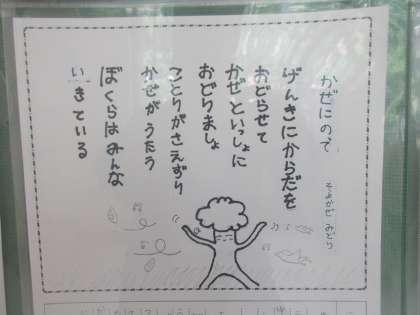 かぜにのって
そよかぜ みどり
げんきにからだを
おどらせて
かぜといっしょに
おどりましょ
ことりがさえずり
かぜがうたう
ぼくらはみんな
いきている